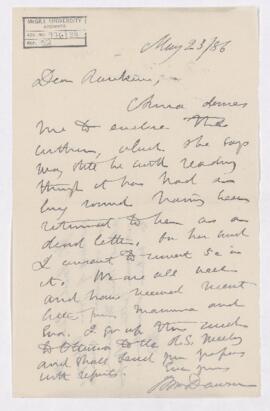 McGILL UNIVERSITY
ARCHIVES
ACC. NO. 976/88
REF. 52
May 23/86
Dear Rankine,
Anna desires
me to enclose the
within, which she says
may still be worth reading
though it has had a
long round having been
returned to them as a
dead letter. on her and
I want to
it. We are all well
and have received recent
letter from Mamma and
Eva. I go up this week
to Ottawa to the R.S. Meeting
and shall send you papers
with reports. Ever yours
Dawson